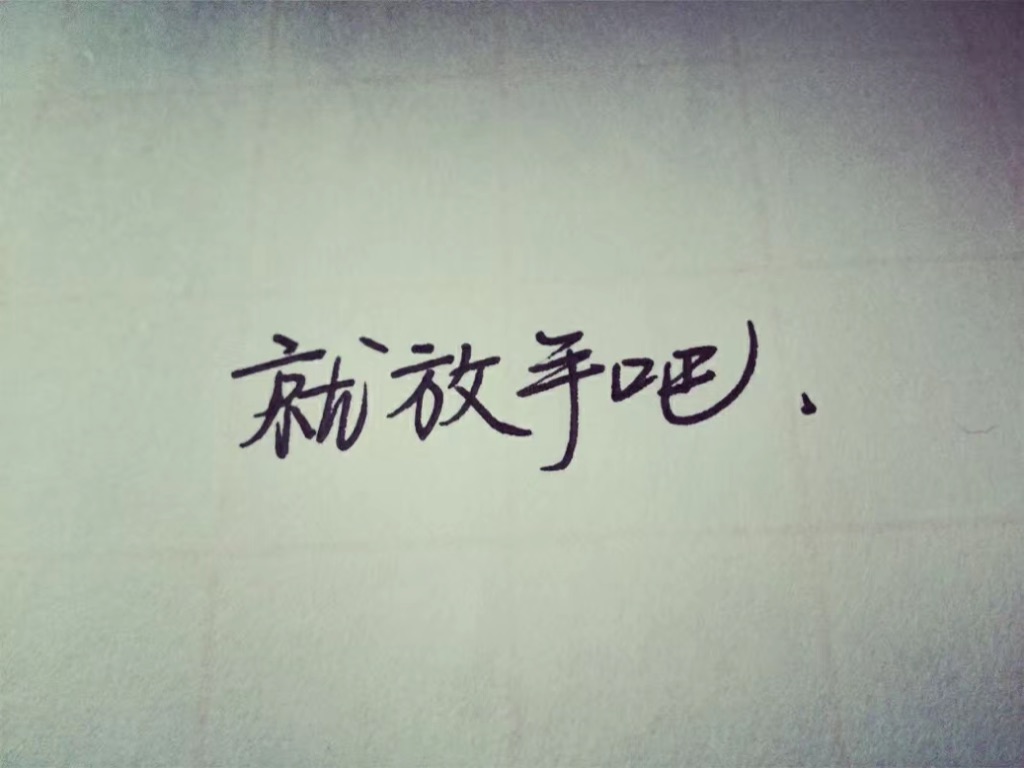 就放手吧.